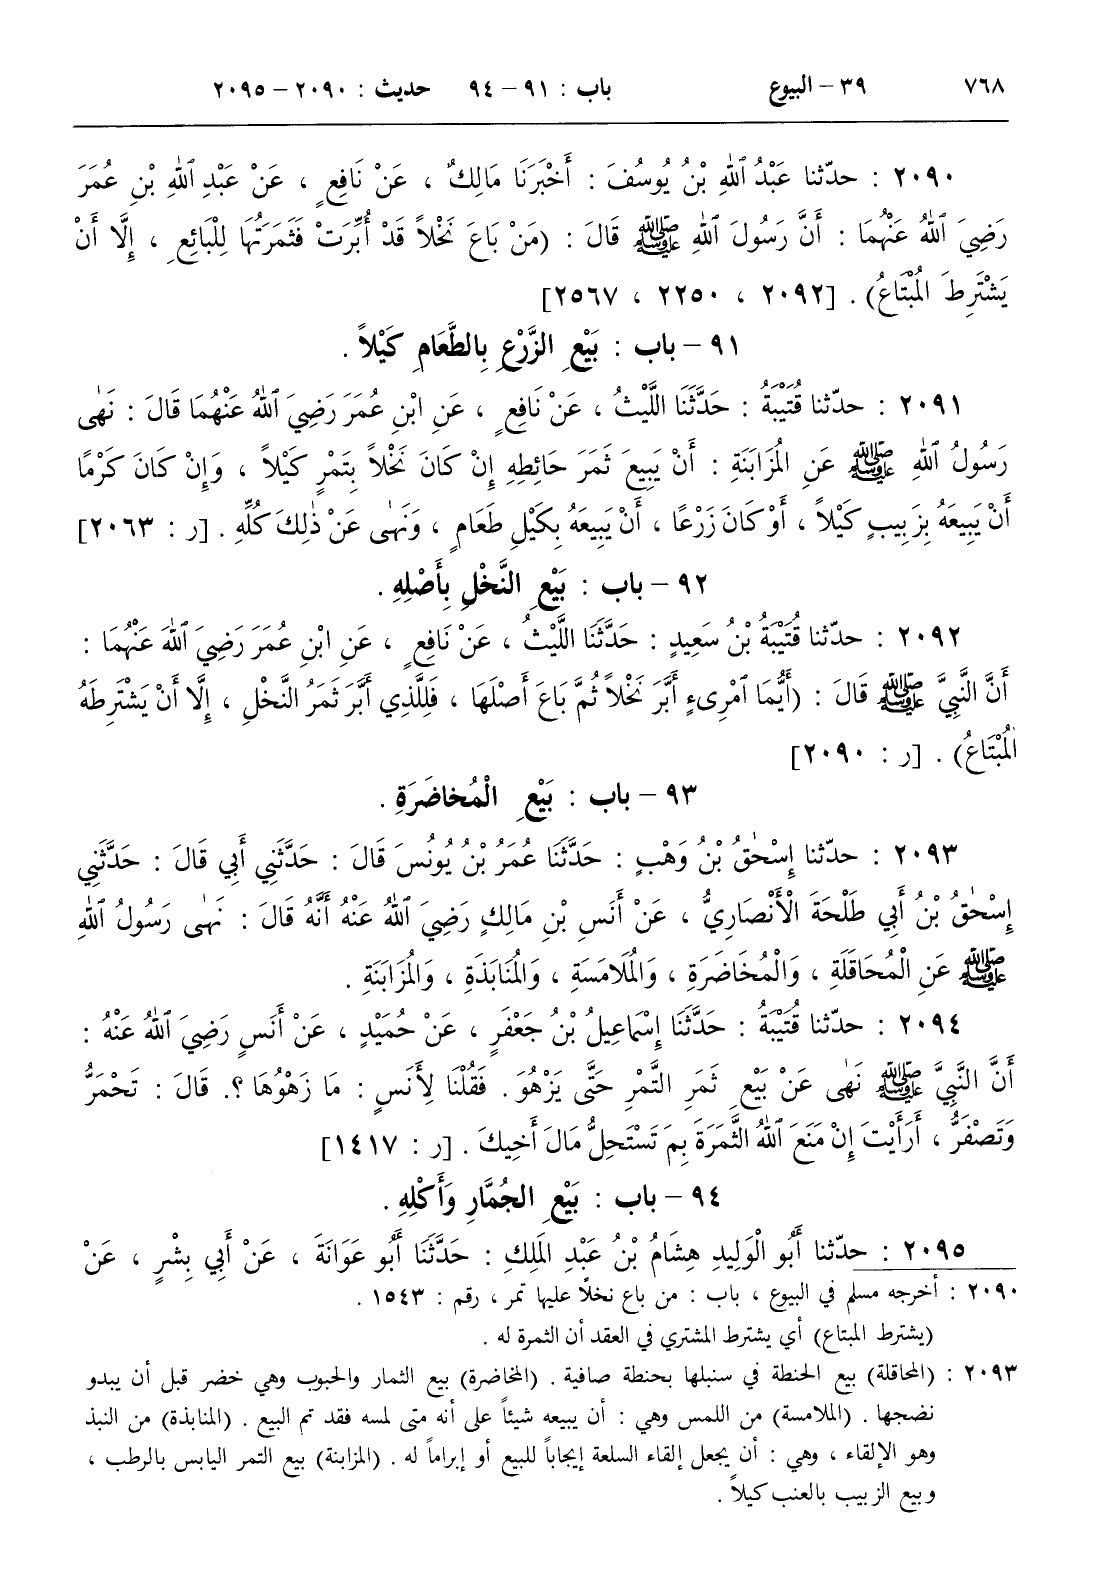 ٧٦٨ ٣٩ – البيوع باب : ٩١ – ٩٤ حديث : ٢٠٩٠ – ٢٠٩٥
٢٠٩٠ : حدّثنا عَبْدُ ٱللهِ بْنُ يُوسُفَ : أَخْبَرَنَا مَالِكٌ ، عَنْ نَافِعٍ ، عَنْ عَبْدِ ٱللهِ بْنِ عُمَرَ
رَضِيَ ٱللهُ عَنْهُمَا : أَنَّ رَسُولَ ٱللهِ ﷺ قَالَ : (مَنْ بَاعَ نَخْلاً قَدْ أُبِّرَتْ فَثَمَرَتُهَا لِلْبَائِعِ ، إِلَّا أَنْ
يَشْتَرِطَ الْمُبْتَاعُ) . [٢٠٩٢ ، ٢٢٥٠ ، ٢٥٦٧]
٩١ – باب : بَيْعِ الزَّرْعِ بِالطَّعَامِ كَيْلاً .
٢٠٩١ : حدّثنا قُتَيْبَةُ : حَدَّثَنَا اللَّيْثُ ، عَنْ نَافِعٍ ، عَنِ ابْنِ عُمَرَ رَضِيَ ٱللهُ عَنْهُمَا قَالَ : نَهٰى
رَسُولُ ٱللهِ ﷺ عَنِ الْمُزَابَنَةِ : أَنْ يَبِيعَ ثَمَرَ حَائِطِهِ إِنْ كَانَ نَخْلاً بِتَمْرٍ كَيْلاً ، وَإِنْ كَانَ كَرْمًا
أَنْ يَبِيعَهُ بِزَبِيبٍ كَيْلاً ، أَوْ كَانَ زَرْعًا ، أَنْ يَبِيعَهُ بِكَيْلِ طَعَامٍ ، وَنَهٰى عَنْ ذٰلِكَ كُلِّهِ . [ر : ٢٠٦٣]
٩٢ – باب : بَيْعِ النَّخْلِ بِأَصْلِهِ .
٢٠٩٢ : حدّثنا قُتَيْبَةُ بْنُ سَعِيدٍ : حَدَّثَنَا اللَّيْثُ ، عَنْ نَافِعٍ ، عَنِ ابْنِ عُمَرَ رَضِيَ ٱللهُ عَنْهُمَا :
أَنَّ النَّبِيَّ ﷺ قَالَ : (أَيُّمَا ٱمْرِىءٍ أَبَّرَ نَخْلاً ثُمَّ بَاعَ أَصْلَهَا ، فَلِلَّذِي أَبَّرَ ثَمَرُ النَّخْلِ ، إِلَّا أَنْ يَشْتَرِطَهُ
الْمُبْتَاعُ) . [ر : ٢٠٩٠]
٩٣ – باب : بَيْعِ الْمُخاضَرَةِ .
٢٠٩٣ : حدّثنا إِسْحٰقُ بْنُ وَهْبٍ : حَدَّثَنَا عُمَرُ بْنُ يُونُسَ قَالَ : حَدَّثَنِي أَبِي قَالَ : حَدَّثَنِي
إِسْحٰقُ بْنُ أَبِي طَلْحَةَ الْأَنْصَارِيُّ ، عَنْ أَنَسِ بْنِ مَالِكٍ رَضِيَ ٱللهُ عَنْهُ أَنَّهُ قَالَ : نَهٰى رَسُولُ ٱللهِ
ﷺ عَنِ الْمُحَاقَلَةِ ، وَالْمُخَاضَرَةِ ، وَالْمُلَامَسَةِ ، وَالْمُنَابَذَةِ ، وَالْمُزَابَنَةِ .
٢٠٩٤ : حدّثنا قُتَيْبَةُ : حَدَّثَنَا إِسْمَاعِيلُ بْنُ جَعْفَرٍ ، عَنْ حُمَيْدٍ ، عَنْ أَنَسٍ رَضِيَ ٱللهُ عَنْهُ :
أَنَّ النَّبِيَّ ﷺ نَهٰى عَنْ بَيْعِ ثَمَرِ التَّمْرِ حَتَّى يَزْهُوَ . فَقُلْنَا لِأَنَسٍ : مَا زَهْوُهَا ؟. قَالَ : تَحْمَرُّ
وَتَصْفَرُّ ، أَرَأَيْتَ إِنْ مَنَعَ ٱللهُ الثَّمَرَةَ بِمَ تَسْتَحِلُّ مَالَ أَخِيكَ . [ر : ١٤١٧]
٩٤ – باب : بَيْعِ الجُمَّارِ وَأَكْلِهِ .
٢٠٩٥ : حدّثنا أَبُو الْوَلِيدِ هِشَامُ بْنُ عَبْدِ الْمَلِكِ : حَدَّثَنَا أَبُو عَوَانَةَ ، عَنْ أَبِي بِشْرٍ ، عَنْ
٢٠٩٠ : أخرجه مسلم في البيوع ، باب : من باع نخلاً عليها تمر ، رقم : ١٥٤٣ .
(يشترط المبتاع) أي يشترط المشتري في العقد أن الثمرة له .
٢٠٩٣ : (المحاقلة) بيع الحنطة في سنبلها بحنطة صافية . (المخاضرة) بيع الثمار والحبوب وهي خضر قبل أن يبدو
نضجها . (الملامسة) من اللمس وهي : أن يبيعه شيئاً على أنه متى لمسه فقد تم البيع . (المنابذة) من النبذ
وهو الإلقاء ، وهي : أن يجعل إلقاء السلعة إيجاباً للبيع أو إبراماً له . (المزابنة) بيع التمر اليابس بالرطب ،
وبيع الزبيب بالعنب كيلاً .